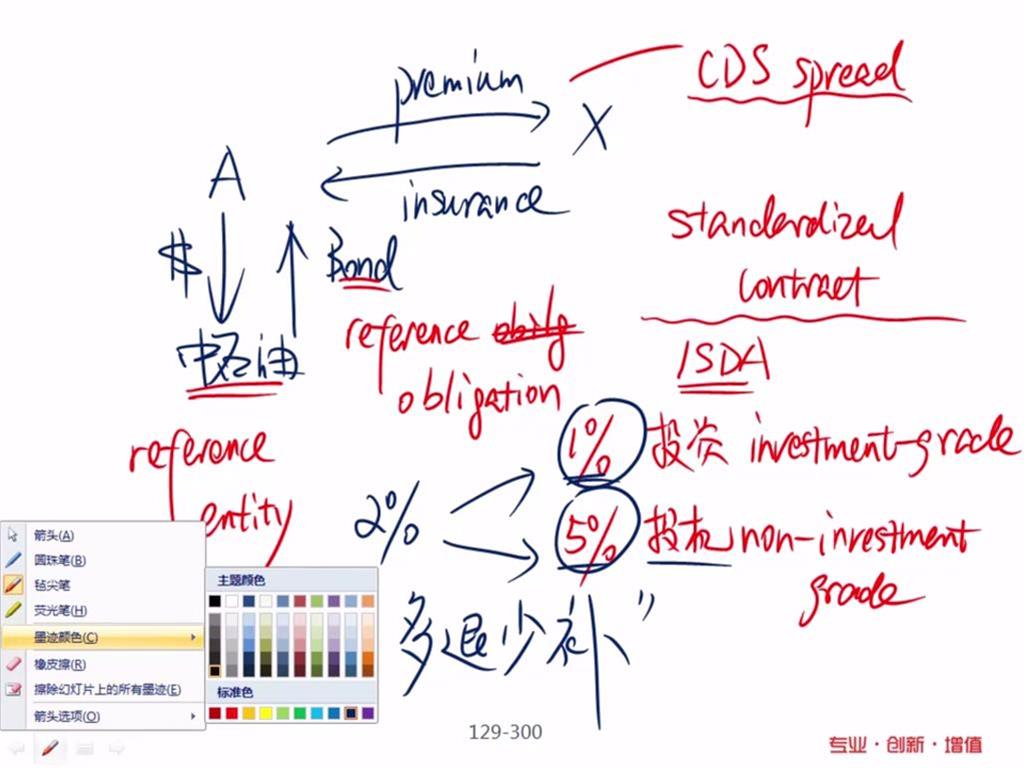 premium
CDS spread
X
A
insurance
standardized
contract
$
Bond
中石油
reference obilg
obligation
ISDA
reference
entity
1% 投资 investment-grade
2%
5% 投机 non-investment
grade
多退少补”
箭头(A)
圆珠笔(B)
毡尖笔
荧光笔(H)
墨迹颜色(C)
橡皮擦(R)
擦除幻灯片上的所有墨迹(E)
箭头选项(O)
主题颜色
标准色
129-300
专业·创新·增值